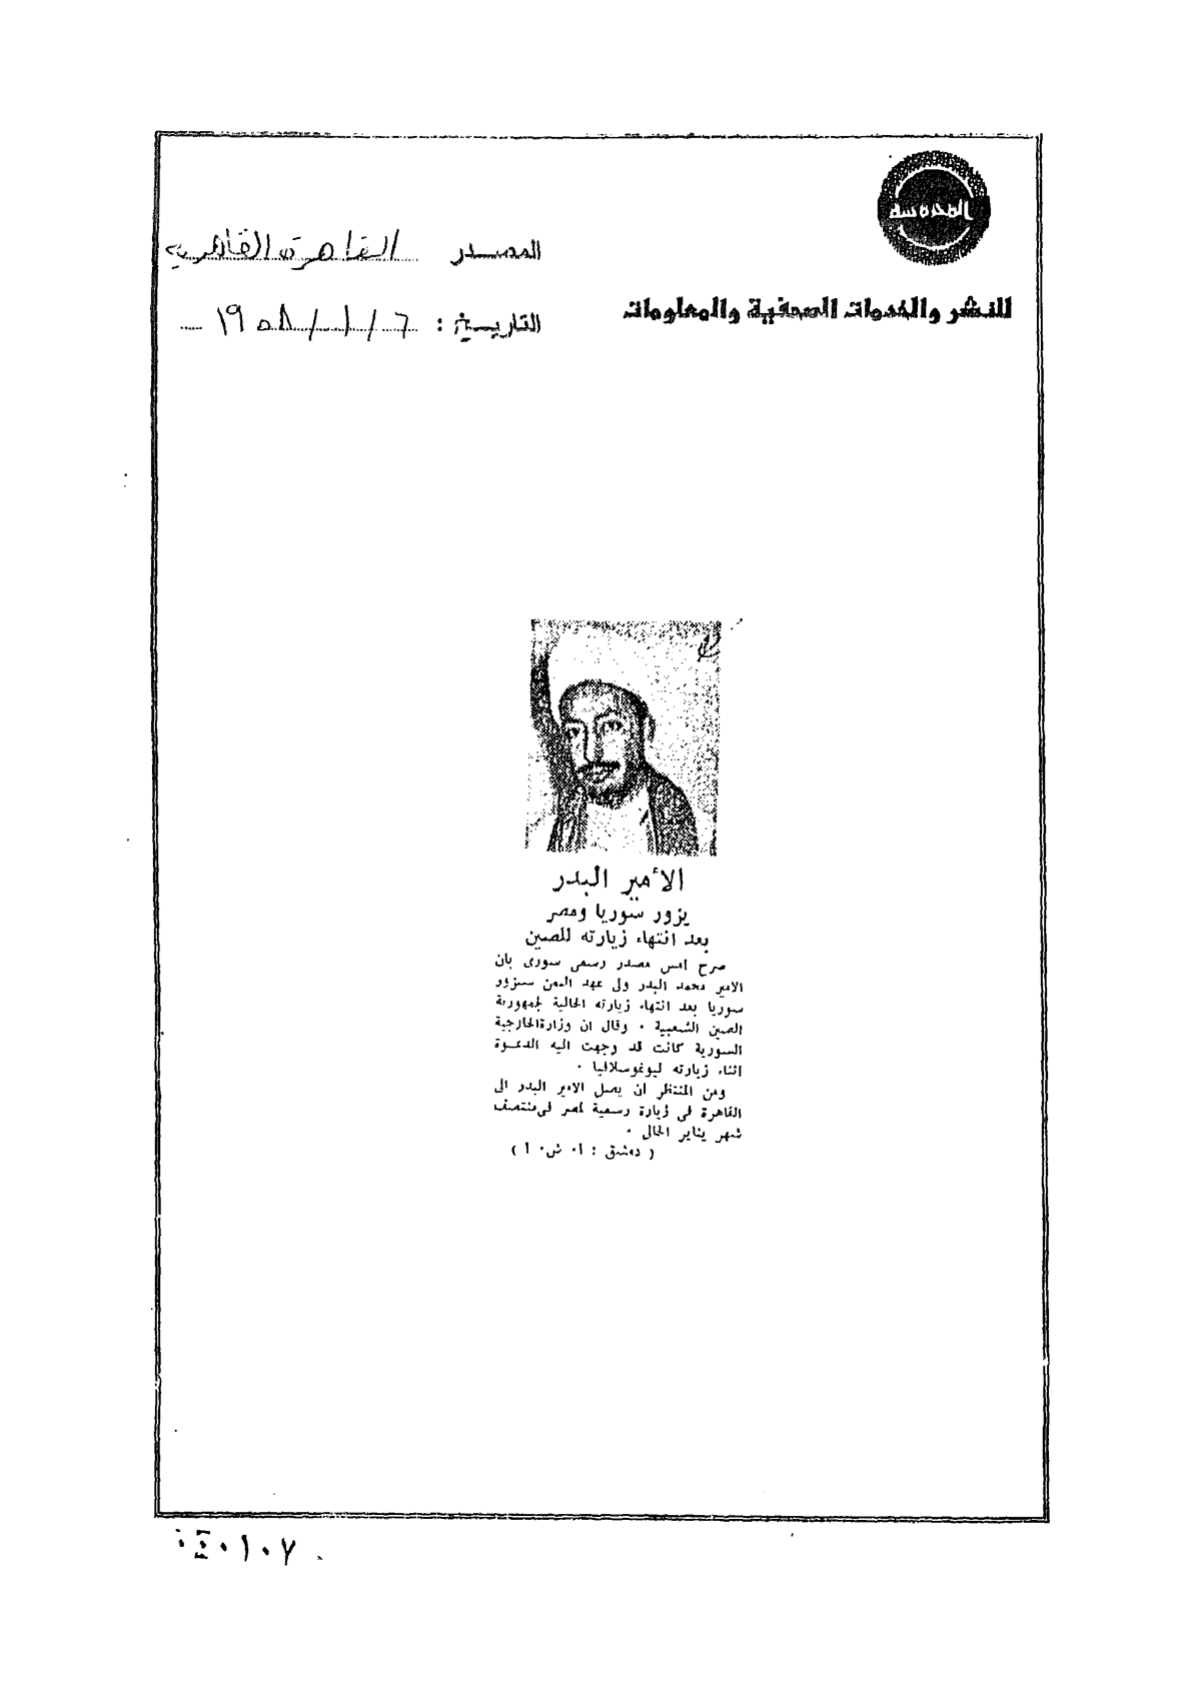 المحروسة
للنشر والخدمات الصحفية والمعلومات
المصدر القاهرة القاهرية
التاريخ : ٦ / ١ / ١٩٥٨
الأمير البدر
يزور سوريا ومصر
بعد انتهاء زيارته للصين
صرح امس مصدر رسمى سورى بان
الامير محمد البدر ولى عهد اليمن سيزور
سوريا بعد انتهاء زيارته الحالية لجمهورية
الصين الشعبية ٠ وقال ان وزارة الخارجية
السورية كانت قد وجهت اليه الدعوة
اثناء زيارته ليوغوسلافيا ٠
ومن المنتظر ان يصل الامير البدر الى
القاهرة فى زيارة رسمية لمصر فى منتصف
شهر يناير الحالى ٠
( دمشق : ا٠ ش٠ أ )